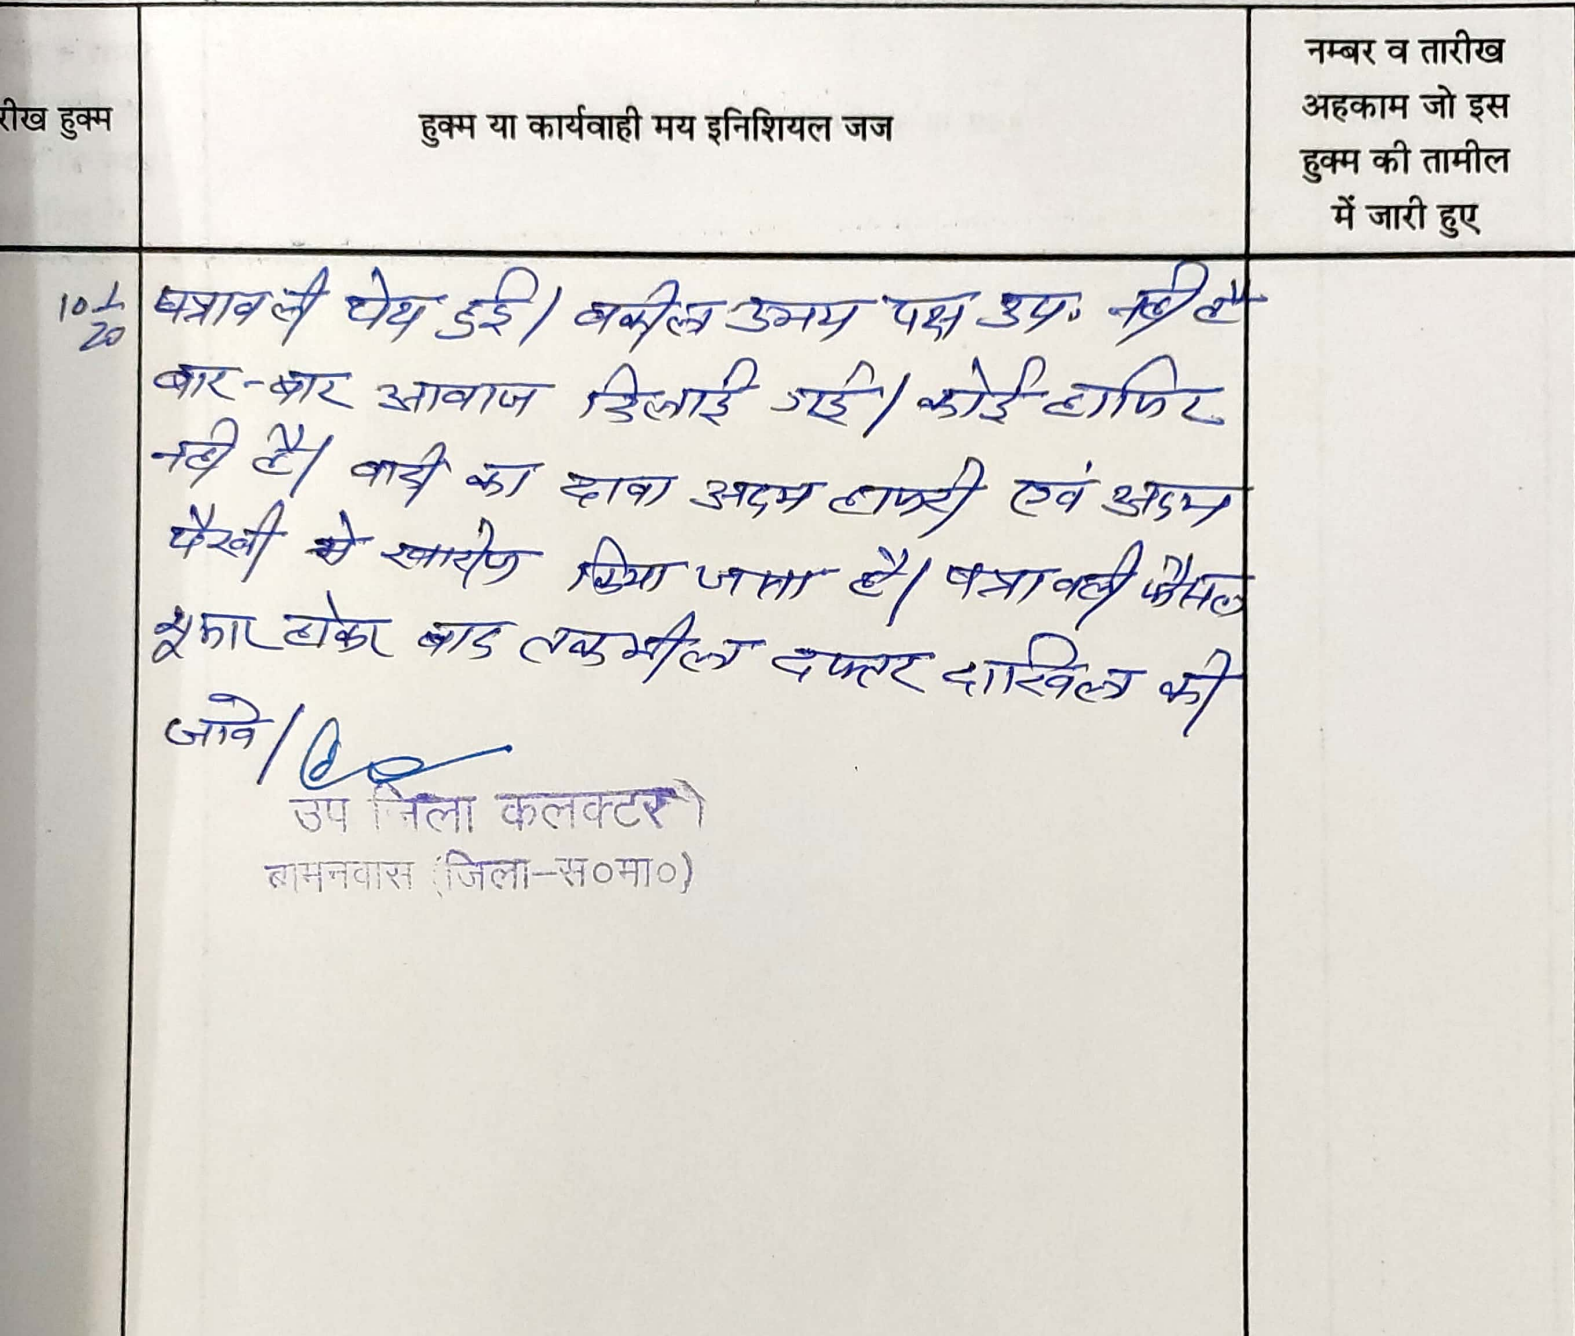 रीख हुक्म
हुक्म या कार्यवाही मय इनिशियल जज
नम्बर व तारीख
अहकाम जो इस
हुक्म की तामील
में जारी हुए
10-1
20
पत्रावली पेश हुई। वकील उभय पक्ष उप. नही है
बार-बार आवाज दिलाई गई। कोई हाजिर
नही है। वादी का दावा अदम हाजरी एवं अदम
पैरवी मे खारीज किया जाता है। पत्रावली फैसल
शुमार होकर बाद तकमील दफ्तर दाखिल की
जावे।
उप जिला कलक्टर
बामनवास (जिला-स०मा०)